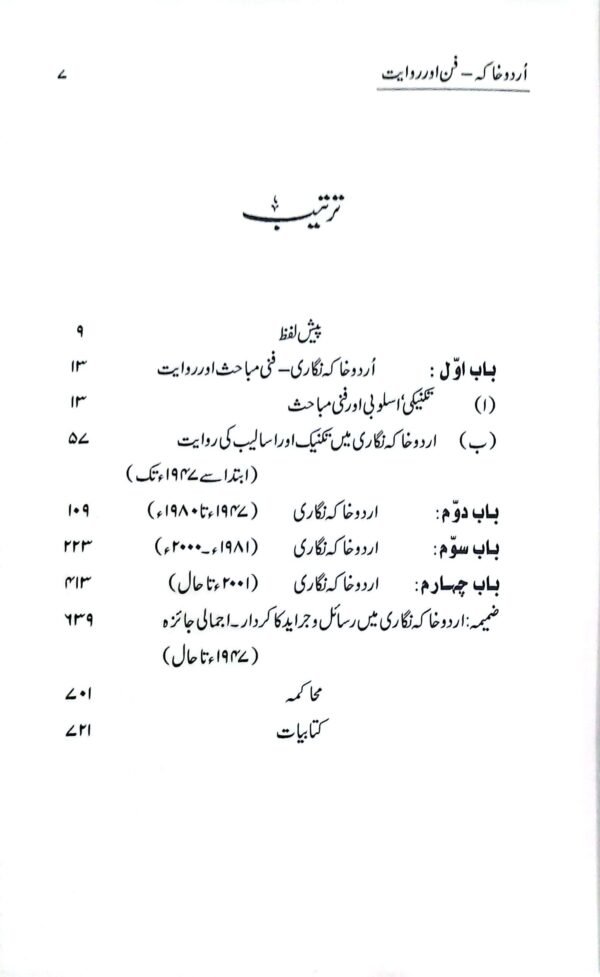 اُردو خاکہ – فن اور روایت ۷
ترتیب
پیش لفظ ۹
باب اوّل: اُردو خاکہ نگاری – فنی مباحث اور روایت ۱۳
(ا) تکنیکی، اسلوبی اور فنی مباحث ۱۳
(ب) اردو خاکہ نگاری میں تکنیک اور اسالیب کی روایت ۵۷
(ابتدا سے ۱۹۴۷ء تک)
باب دوّم: اردو خاکہ نگاری (۱۹۴۷ء تا ۱۹۸۰ء) ۱۰۹
باب سوّم: اردو خاکہ نگاری (۱۹۸۱ء۔۲۰۰۰ء) ۲۲۳
باب چہارم: اردو خاکہ نگاری (۲۰۰۱ء تا حال) ۴۱۳
ضمیمہ: اردو خاکہ نگاری میں رسائل و جراید کا کردار۔ اجمالی جائزہ ۶۳۹
(۱۹۴۷ء تا حال)
محاکمہ ۷۰۱
کتابیات ۷۲۱